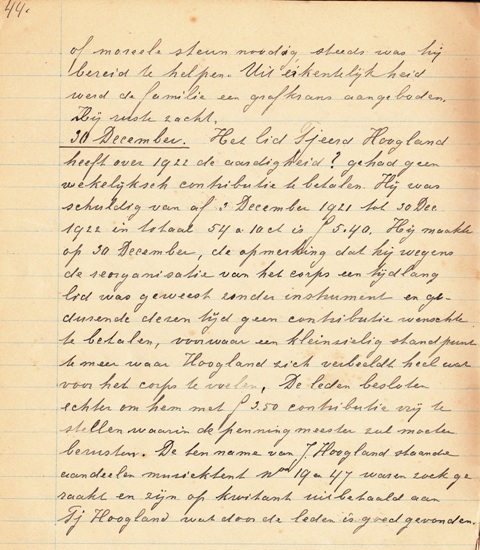 44.
of moreele steun noodig, steeds was hij
bereid te helpen. Uit erkentelijkheid
werd de familie een grafkrans aangeboden.
Hij ruste zacht.
30 December. Het lid Tjeerd Hoogland
heeft over 1922 de aardigheid? gehad geen
wekelijksch contributie te betalen. Hij was
schuldig van af 3 December 1921 tot 30 Dec
1922 in totaal 54 a 10 ct is ƒ 5.40. Hij maakte
op 30 December, de opmerking dat hij wegens
de reorganisatie van het corps een tijdlang
lid was geweest zonder instrument en ge-
durende dezen tijd geen contributie wenschte
te betalen, voorwaar een kleinzielig standpunt
te meer waar Hoogland zich verbeeldt heel wat
voor het corps te voelen. De leden besloten
echter om hem met ƒ 2.50 contributie vrij te
stellen waarin de penningmeester zal moeten
berusten. De ten name van J. Hoogland staande
aandeelen muziektent Nos 19 a 47 waren zoek ge
raakt en zijn op kwitant uitbetaald aan
Tj Hoogland wat door de leden is goed gevonden.